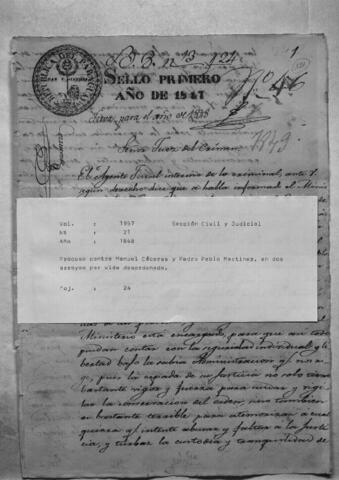 S. P. nº 13 124 1
REPUBLICA DEL PARAGUAY
PAZ Y JUSTICIA
SELLO PRIMERO
AÑO DE 1847
Nº 46
Sirva para el año de 1848
1849
Señor Juez del Crimen
El Agente Fiscal interino de lo criminal, ante V.
segun derecho dice que se halla informado el Minis
Vol. : 1957 Sección Civil y Judicial
Nº : 21
Año : 1848
Proceso contra Manuel Cáceres y Pedro Pablo Martinez, en dos
arroyos por vida desordenada.
Foj. : 24
Ministerio está encargado, para que asi todos
puedan contar con la seguridad individual, y li
bertad bajo la sabia Administracion qe. nos ri
ge, pues la espada de su Justicia no solo tiene
bastante vigor y fuerza para cuidar y vigi
lar la conservacion del orden, sino tambien
es bastante terrible para atemorizar a cual
quiera qe. intente abusar y faltar a la Justi
cia, y turbar la custodia y tranquilidad de